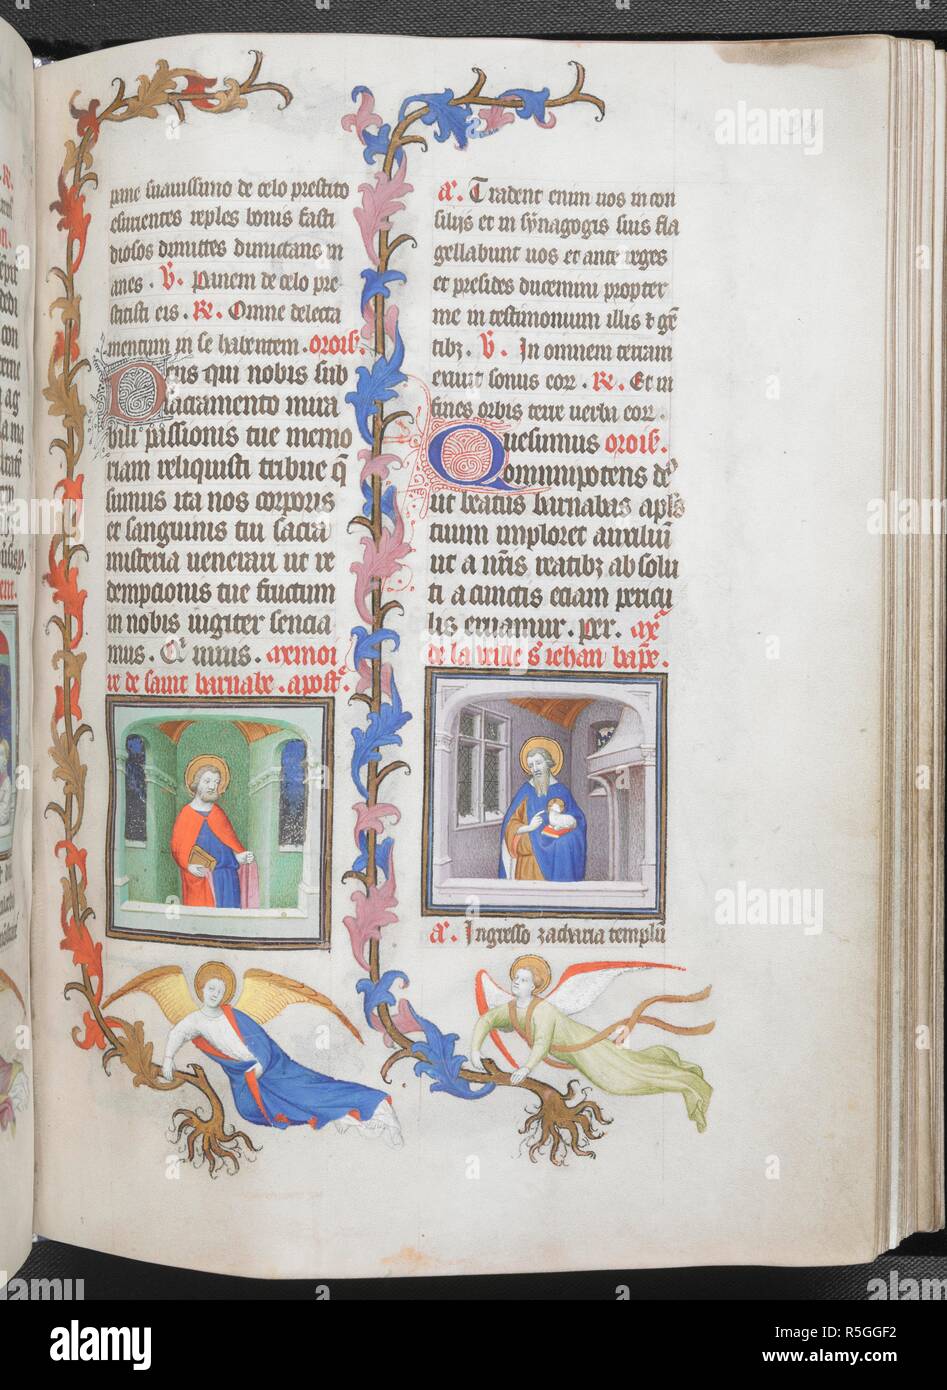 pane suauissimo de celo prestito
esurientes reples bonis fasti
diosos dimittes diuictans in
anes . V̷. Panem de celo pre-
stitisti eis . R̷. Omne delecta
mentum in se habentem . orois̷.
Deus qui nobis sub
sacramento mira
bili passionis tue memo
riam reliquisti tribue q̄
sumus ita nos corporis
et sanguinis tui sacra
misteria uenerari ut re
dempcionis tue fructum
in nobis iugiter sencia
mus. Qui uiuis. a memoi
re de saint barnabe . apost̷.
a᷒. Tradent enim uos in con
silijs et in synagogis suis fla
gellabunt uos et ante reges
et presides ducemini propter
me in testimonium illis ⁊ gē
tibꝫ . V̷. In omnem terram
exiuit sonus eor . R̷. Et in
fines orbis terre uerba eor .
Quesumus orois̷.
omnipotens de᷒
ut beatus barnabas apl̄s
tuum imploret auxiliū
ut a nr̄is reatibꝫ absolu
ti a cunctis eciam pericu
lis eruamur . per. ax̄
de la veille s̄ iehan bap̄e.
a᷒. Ingresso zacharia templū
alamy
Image ID: R5GGF2
www.alamy.com